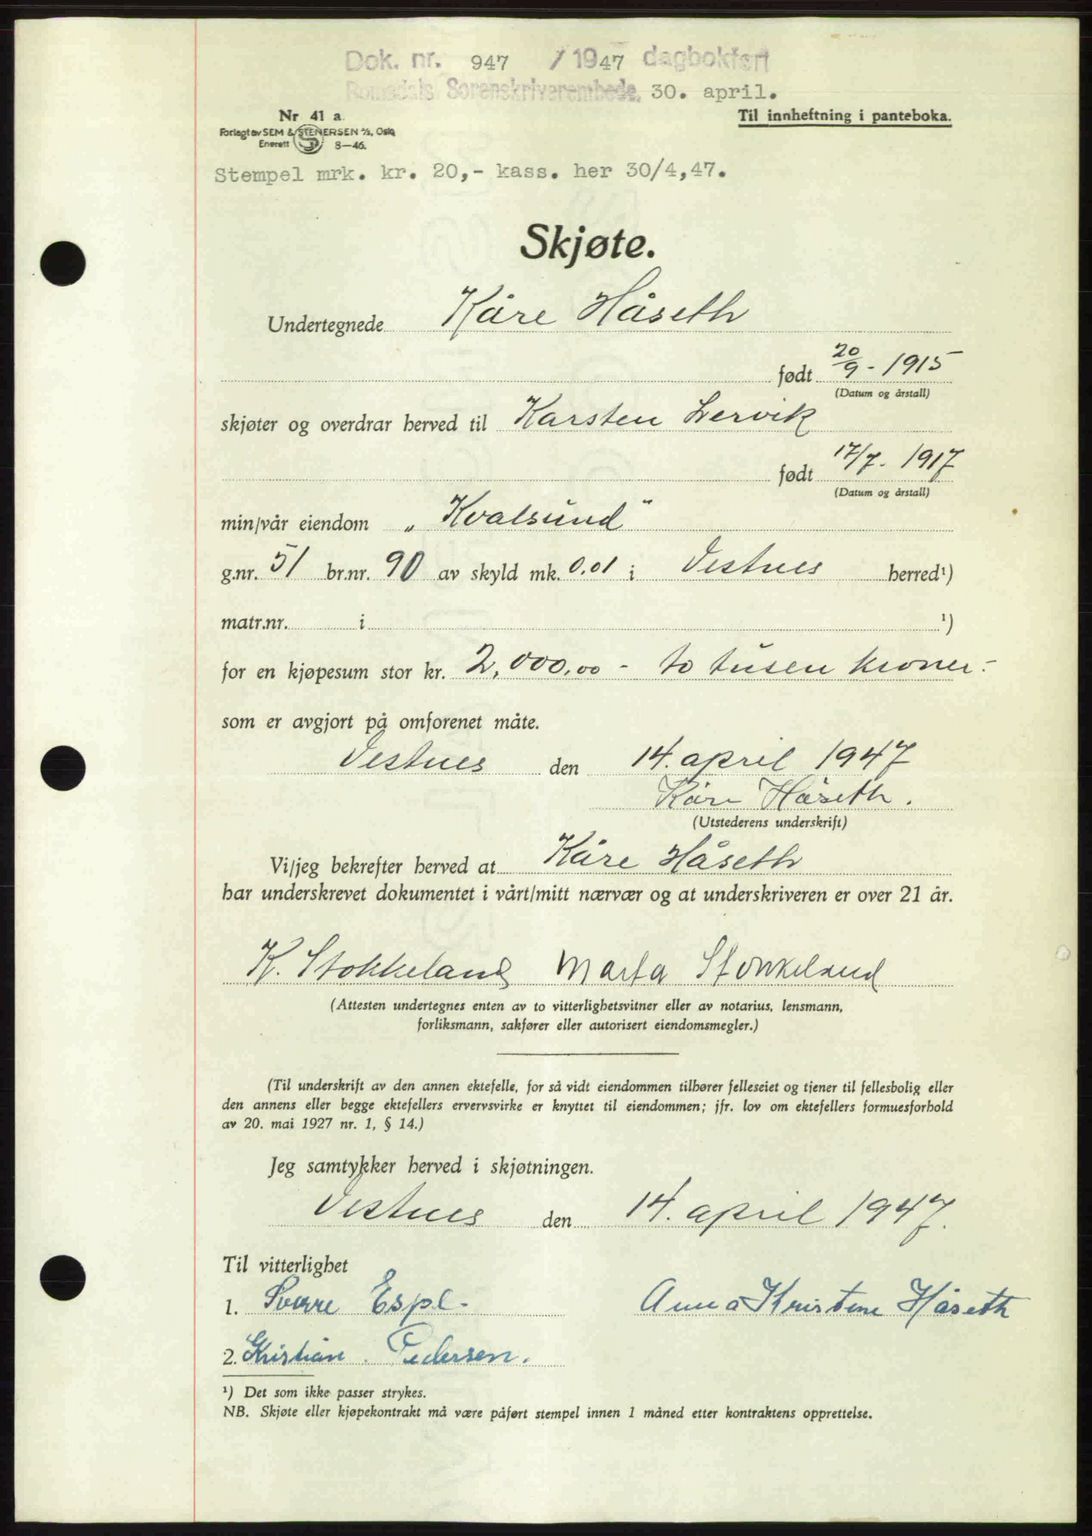 Dok. nr. 947 / 1947 dagbokført
Romsdals Sorenskriverembede, 30. april.
Nr 41 a.
Til innheftning i panteboka.
Forlagt av SEM & STENERSEN A/S, Oslo
Enerett 8—46.
Stempel mrk. kr. 20,- kass. her 30/4,47.
Skjøte.
Undertegnede Kåre Håseth
født 20/9 - 1915
(Datum og årstall)
skjøter og overdrar herved til Karsten Lervik
født 17/7. 1917
(Datum og årstall)
min/vår eiendom „Kvalsund"
g.nr. 51 br.nr. 90 av skyld mk. 0.01 i Vestnes herred¹)
matr.nr. i ¹)
for en kjøpesum stor kr. 2.000,00 - to tusen kroner -
som er avgjort på omforenet måte.
Vestnes den 14. april 1947
Kåre Håseth.
(Utstederens underskrift)
Vi/jeg bekrefter herved at Kåre Håseth
har underskrevet dokumentet i vårt/mitt nærvær og at underskriveren er over 21 år.
K. Stokkeland Marta Stokkeland
(Attesten undertegnes enten av to vitterlighetsvitner eller av notarius, lensmann,
forliksmann, sakfører eller autorisert eiendomsmegler.)
(Til underskrift av den annen ektefelle, for så vidt eiendommen tilhører felleseiet og tjener til fellesbolig eller
den annens eller begge ektefellers ervervsvirke er knyttet til eiendommen; jfr. lov om ektefellers formuesforhold
av 20. mai 1927 nr. 1, § 14.)
Jeg samtykker herved i skjøtningen.
Vestnes den 14. april 1947.
Til vitterlighet
1. Sverre Espl. Anna Kristine Håseth
2. Kristian Pedersen.
¹) Det som ikke passer strykes.
NB. Skjøte eller kjøpekontrakt må være påført stempel innen 1 måned etter kontraktens opprettelse.